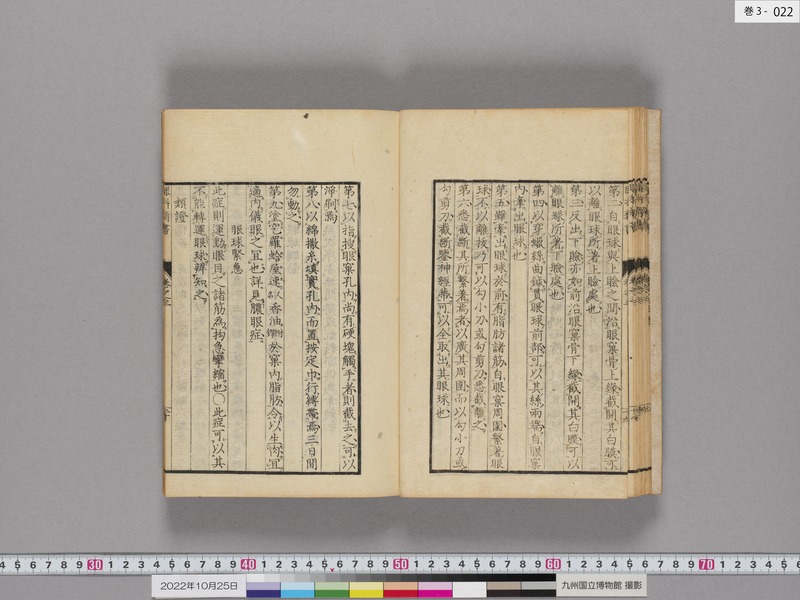 巻3- 022
第二自眼球與上瞼之間沿眼窠骨上緣截開其白膜可
以離眼球所著上瞼處也
第三反出下瞼亦如前沿眼窠骨下緣截開其白膜可以
離眼球所著下瞼處也
第四以穿蠟絲曲鍼貫眼球前部可以其絲兩端自眼窠
內牽出眼球也
第五雖牽出眼球於前有脂肪諸筋自眼窠周圍繫著眼
球不以離拔乃可以勾小刀或勾剪刀悉截離之
第六悉截斷其所繫著焉者以廣其周圍而以勾小刀或
勾剪刀截斷鑒神經蒂可以全取出其眼球也
第七以指搜眼窠孔內尚有硬塊觸手者則截去之可以
淨刷焉
第八以綿撒糸填實孔內而置按定巾行縛帶焉三日間
勿動之
第九塗亢羅蛤屋速以香油於窠內脂肪令以生肉宜
適內儀眼之宜也詳見膿眼症
眼球緊急
此症則運動眼目之諸筋為拘急攣縮也〇此症可以其
不能轉運眼球辨知之
類證
眼科新書
卷之三
30 40 50 60 70
2022年10月25日
九州国立博物館 撮影